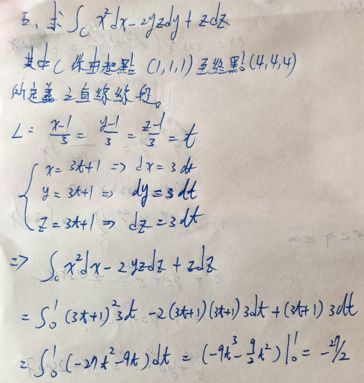 五、求 ∫_C x²dx - 2yzdy + zdz
其中 C 係由起點 (1,1,1) 至終點 (4,4,4)
所定義之直線線段。
L: (x-1)/3 = (y-1)/3 = (z-1)/3 = t
x = 3t+1 => dx = 3dt
y = 3t+1 => dy = 3dt
z = 3t+1 => dz = 3dt
=> ∫_C x²dx - 2yzdz + zdz
= ∫₀¹ (3t+1)² 3dt - 2(3t+1)(3t+1) 3dt + (3t+1) 3dt
= ∫₀¹ (-27t² - 9t) dt = (-9t³ - 9/2 t²)|₀¹ = -27/2